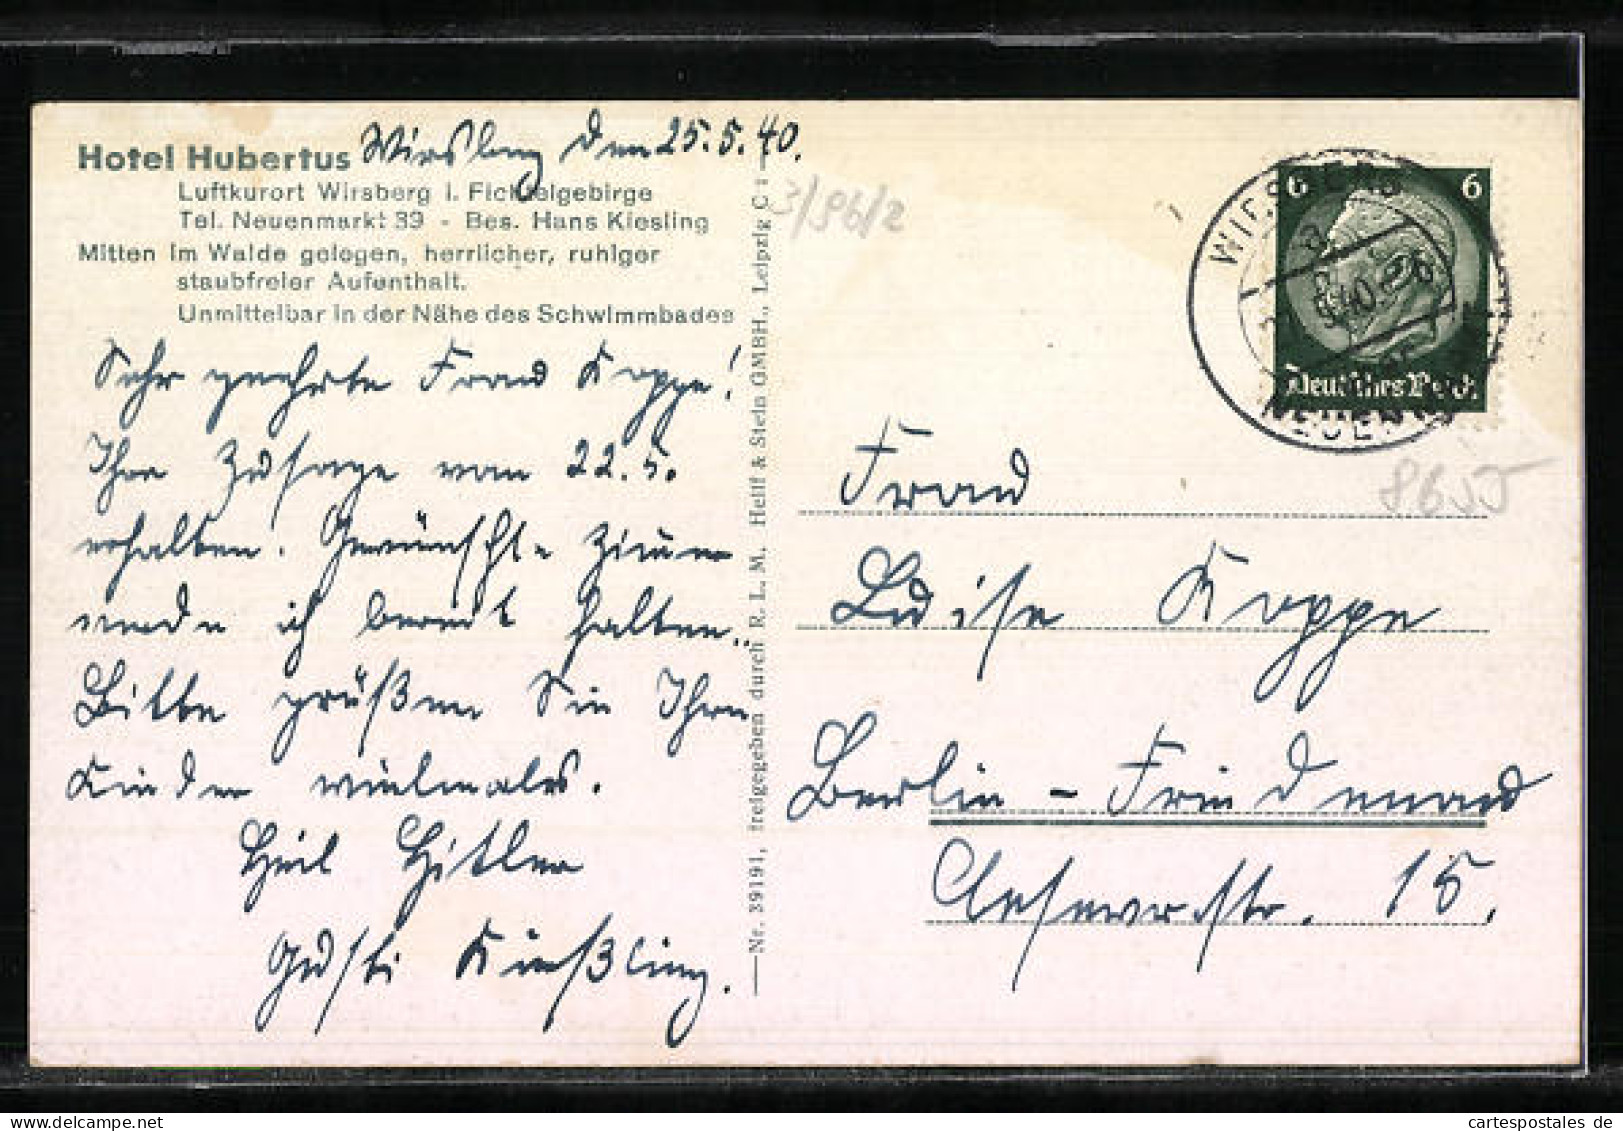 Hotel Hubertus
Wirsberg den 25.5.40.
Luftkurort Wirsberg i. Fichtelgebirge
Tel. Neuenmarkt 39 - Bes. Hans Kiesling
Mitten im Walde gelegen, herrlicher, ruhiger
staubfreier Aufenthalt.
Unmittelbar in der Nähe des Schwimmbades
Sehr geehrte Frau Koppe!
Ihre Zusage vom 22.5.
erhalten. Gewünschte Zimmer
werde ich bereit halten.
Bitte grüßen Sie Ihre
Kinder vielmals.
Heil Hitler
Gusti Kießling.
Nr. 39191, freigegeben durch R. L. M. Helff & Stein GMBH., Leipzig C 1
3/96/2
6 6
Deutsches Reich
8655
Frau
Luise Koppe
Berlin - Friedenau
str. 15.
cartespostales de